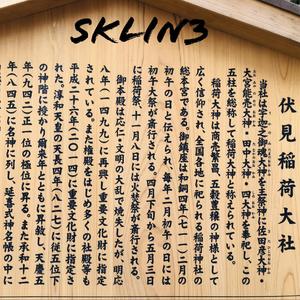 SKLIN3
伏見稲荷大社
当社は宇迦之御魂大神を主祭神に佐田彦大神・
大宮能売大神・田中大神・四大神を奉祀し、この
五柱を総称して稲荷大神と称えられている。
稲荷大神は商売繁昌、五穀豊穣の神様として
広く信仰され、全国各地に祀られる稲荷神社の
総本宮である。御鎮座は和銅四年(七一一)二月の
初午の日と伝えられ、毎年二月初午の日には
初午大祭が斎行される。四月下旬から五月三日
に稲荷祭、十一月八日には火焚祭が斎行される。
御本殿は応仁・文明の大乱で焼失したが、明応
八年(一四九九)に再興し重要文化財に指定さ
されている。また権殿をはじめ多くの社殿等も
平成二十六年(二〇一四)に重要文化財に指定さ
れた。淳和天皇の天長四年(八二七)に従五位下
の神階に授かり爾来年とともに昇叙し、天慶五
年(九四二)正一位の極位に昇る。また承和十二
年(八四五)名神に列し、延喜式神名帳の中に